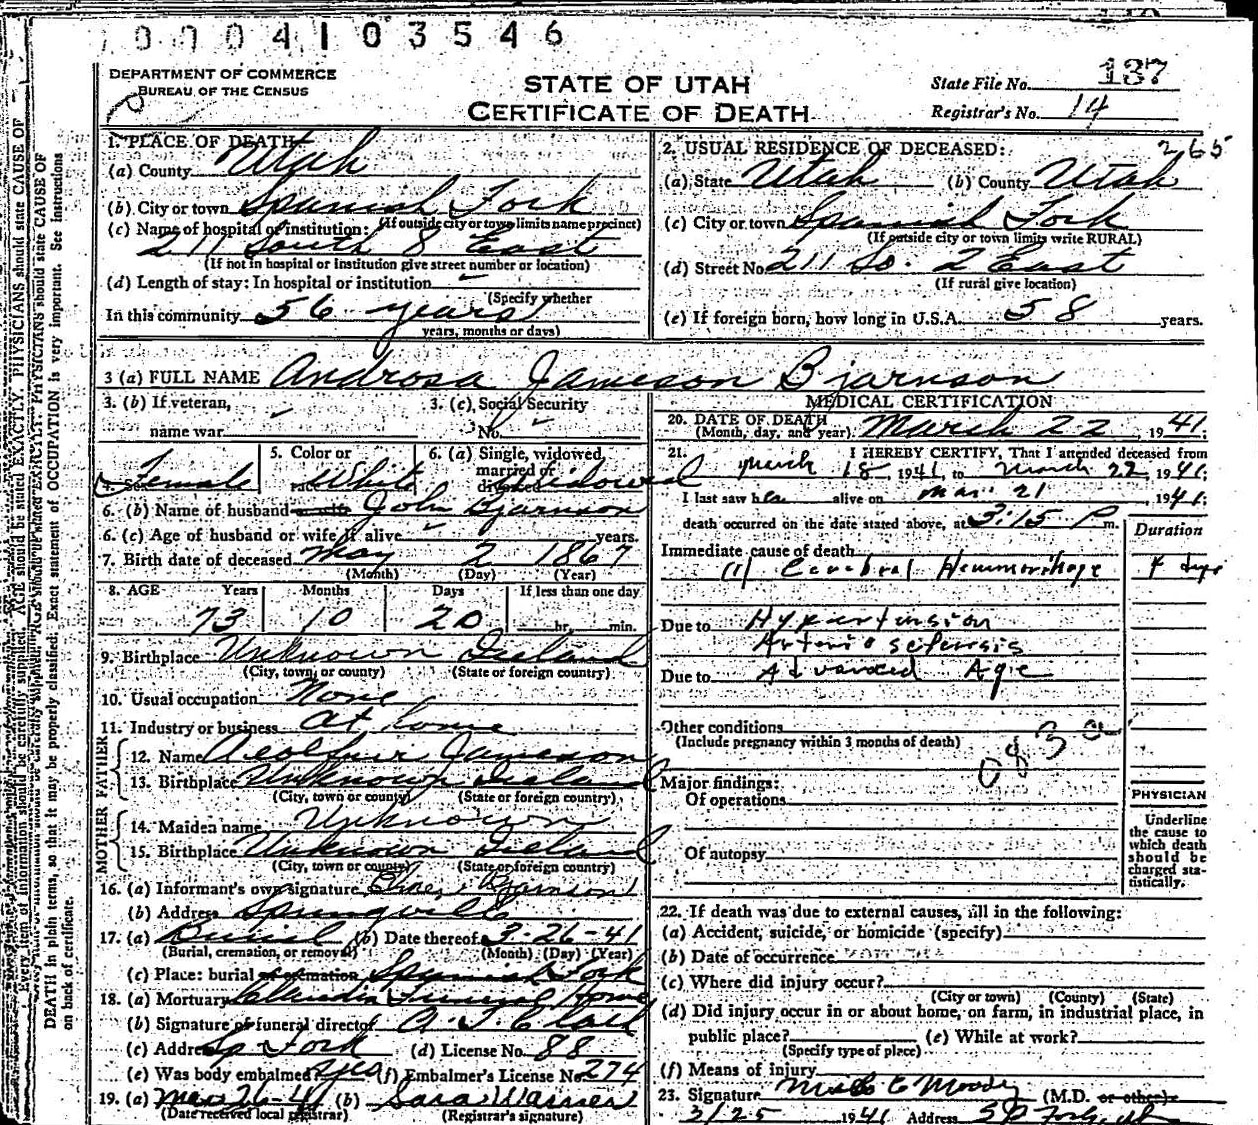 0004103546
DEPARTMENT OF COMMERCE
BUREAU OF THE CENSUS
STATE OF UTAH
CERTIFICATE OF DEATH
State File No. 137
Registrar's No. 14
265
1. PLACE OF DEATH
(a) County Utah
(b) City or town Spanish Fork
(If outside city or town limits name precinct)
(c) Name of hospital or institution:
211 South 8 East
(If not in hospital or institution give street number or location)
(d) Length of stay: In hospital or institution
(Specify whether
In this community 56 years
years, months or days)
2. USUAL RESIDENCE OF DECEASED:
(a) State Utah (b) County Utah
(c) City or town Spanish Fork
(If outside city or town limits write RURAL)
(d) Street No. 211 So. 2 East
(If rural give location)
(e) If foreign born, how long in U.S.A. 58 years.
3 (a) FULL NAME Androsa Jameson Bjarnson
3. (b) If veteran,
name war
3. (c) Social Security
No.
Female
5. Color or
race White
6. (a) Single, widowed,
married or
divorced Widowed
6. (b) Name of husband or wife John Bjarnson
6. (c) Age of husband or wife if alive years.
7. Birth date of deceased May 2 1867
(Month) (Day) (Year)
8. AGE Years Months Days If less than one day
73 10 20 hr. min.
9. Birthplace Unknown Iceland
(City, town, or county) (State or foreign country)
10. Usual occupation None
11. Industry or business at home
FATHER
12. Name Jameson
13. Birthplace Unknown Iceland
(City, town or county) (State or foreign country)
MOTHER
14. Maiden name Unknown
15. Birthplace Unknown Iceland
(City, town or county) (State or foreign country)
16. (a) Informant's own signature Bjarnson
(b) Address Springville
17. (a) Burial (b) Date thereof 3-26-41
(Burial, cremation, or removal) (Month) (Day) (Year)
(c) Place: burial or cremation Spanish Fork
18. (a) Mortuary Claudin Funeral Home
(b) Signature of funeral director
(c) Address Sp Fork (d) License No. 88
(e) Was body embalmed yes (f) Embalmer's License No. 274
19. (a) Mar 26-41 (b) Sara Warner
(Date received local registrar) (Registrar's signature)
MEDICAL CERTIFICATION
20. DATE OF DEATH
(Month, day, and year) March 22, 1941.
21. I HEREBY CERTIFY, That I attended deceased from
March 18, 1941, to March 22, 1941;
I last saw her alive on Mar. 21 1941;
death occurred on the date stated above, at 3:15 P m.
Duration
Immediate cause of death
(1) Cerebral Hemmorrhage 4 days
Due to Hypertension
Arteriosclerosis
Due to Advanced Age
Other conditions
(Include pregnancy within 3 months of death)
083a
Major findings:
Of operations
Of autopsy
PHYSICIAN
Underline
the cause to
which death
should be
charged sta-
tistically.
22. If death was due to external causes, fill in the following:
(a) Accident, suicide, or homicide (specify)
(b) Date of occurrence
(c) Where did injury occur?
(City or town) (County) (State)
(d) Did injury occur in or about home, on farm, in industrial place, in
public place? (e) While at work?
(Specify type of place)
(f) Means of injury
23. Signature Moody (M.D. or other)
3/25 1941 Address Sp Fork, Ut
Every item of information should be carefully supplied. AGE should be stated EXACTLY. PHYSICIANS should state CAUSE OF
DEATH in plain terms, so that it may be properly classified. Exact statement of OCCUPATION is very important. See instructions
on back of certificate.